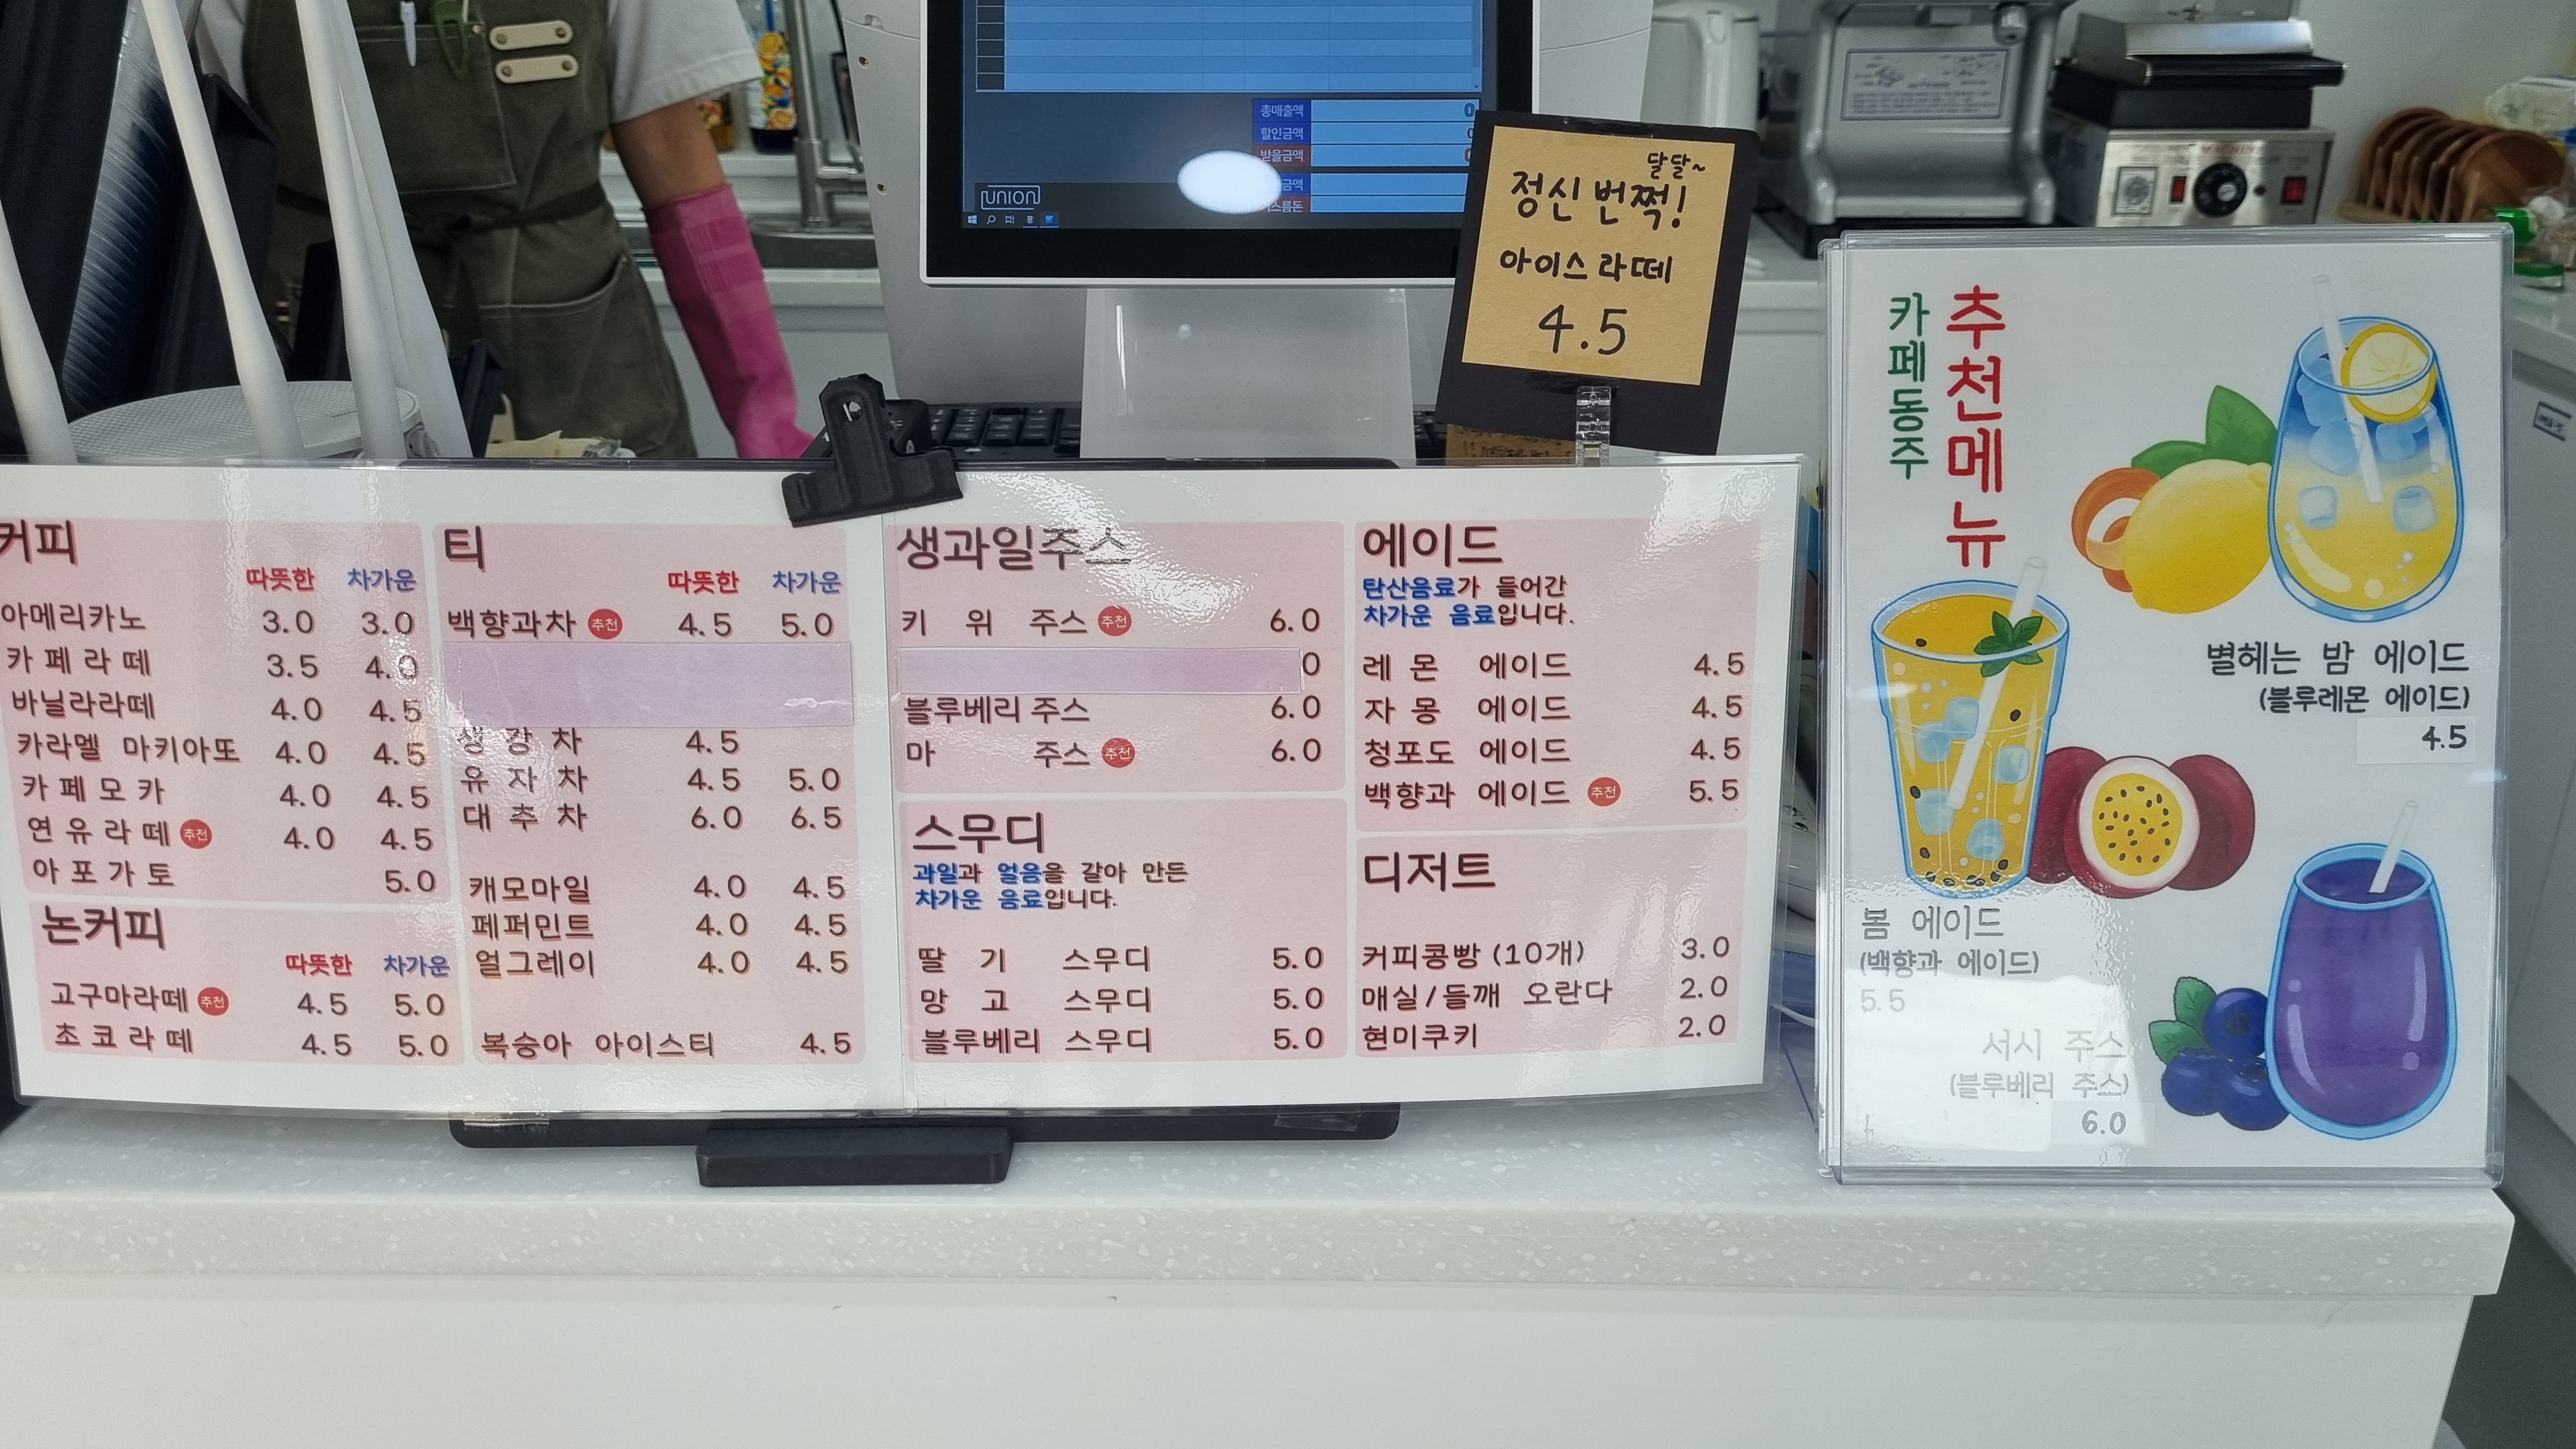 총매출액 0
할인금액
받을금액
UNION
달달~
정신 번쩍!
아이스 라떼
4.5
커피
따뜻한 차가운
아메리카노 3.0 3.0
카페라떼 3.5 4.0
바닐라라떼 4.0 4.5
카라멜 마키아또 4.0 4.5
카페모카 4.0 4.5
연유라떼 추천 4.0 4.5
아포가토 5.0
논커피
따뜻한 차가운
고구마라떼 추천 4.5 5.0
초코라떼 4.5 5.0
티
따뜻한 차가운
백향과차 추천 4.5 5.0
생강차 4.5
유자차 4.5 5.0
대추차 6.0 6.5
캐모마일 4.0 4.5
페퍼민트 4.0 4.5
얼그레이 4.0 4.5
복숭아 아이스티 4.5
생과일주스
키위 주스 추천 6.0
0
블루베리 주스 6.0
마 주스 추천 6.0
스무디
과일과 얼음을 갈아 만든
차가운 음료입니다.
딸기 스무디 5.0
망고 스무디 5.0
블루베리 스무디 5.0
에이드
탄산음료가 들어간
차가운 음료입니다.
레몬 에이드 4.5
자몽 에이드 4.5
청포도 에이드 4.5
백향과 에이드 추천 5.5
디저트
커피콩빵 (10개) 3.0
매실/들깨 오란다 2.0
현미쿠키 2.0
카페동주
추천메뉴
별헤는 밤 에이드
(블루레몬 에이드)
4.5
봄 에이드
(백향과 에이드)
5.5
서시 주스
(블루베리 주스)
6.0